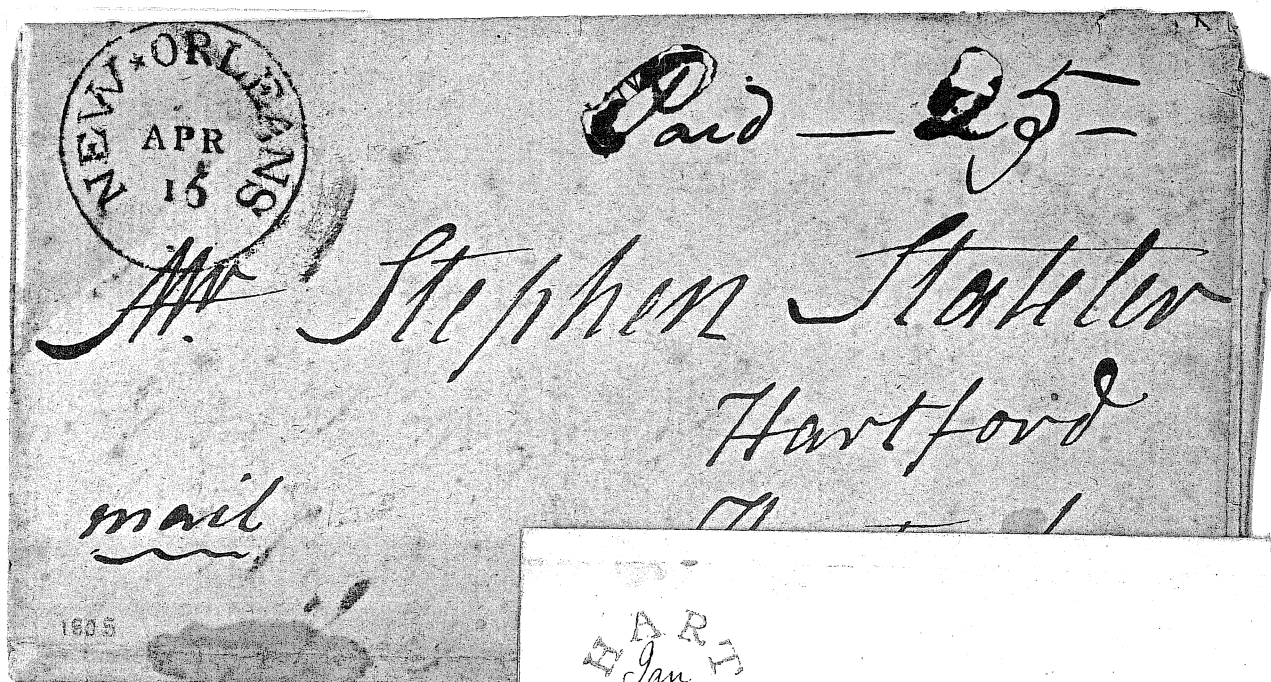 NEW ★ ORLEANS
APR
15
Paid — 25 —
Mr. Stephen
Hartford
mail
1805
HART
Jan